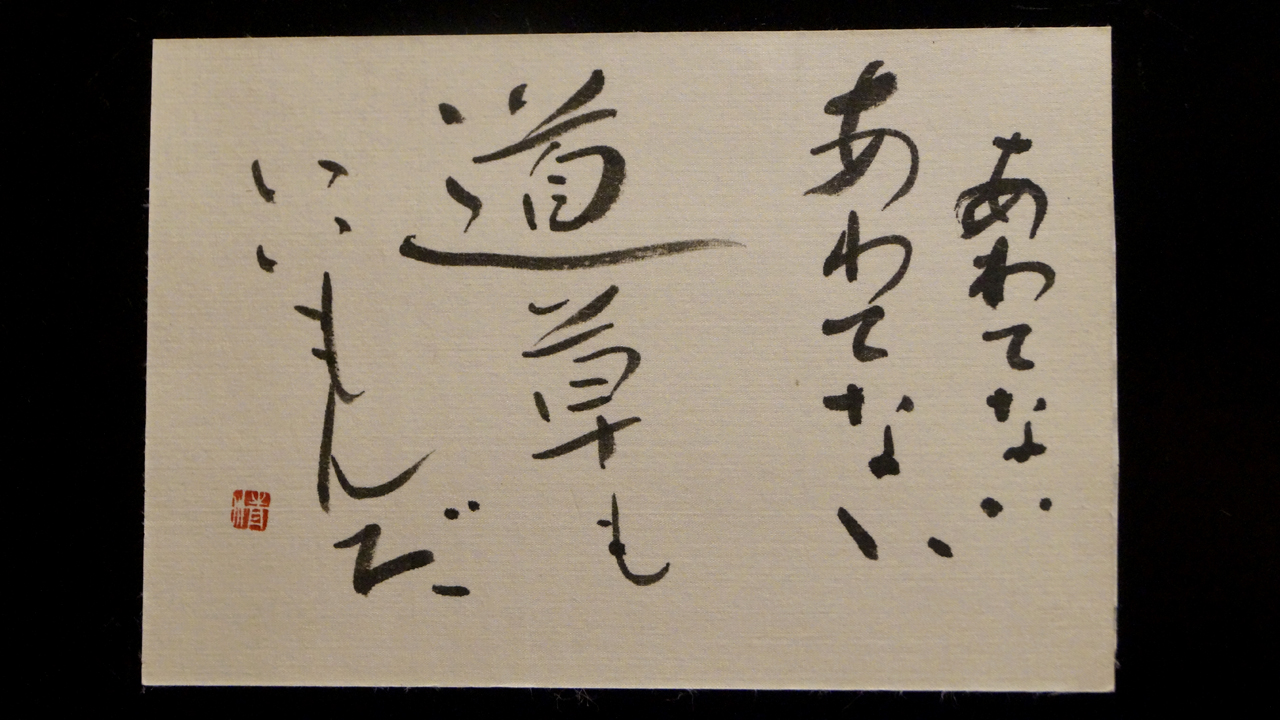 あわてない
あわてない
道草も
いいもんだ